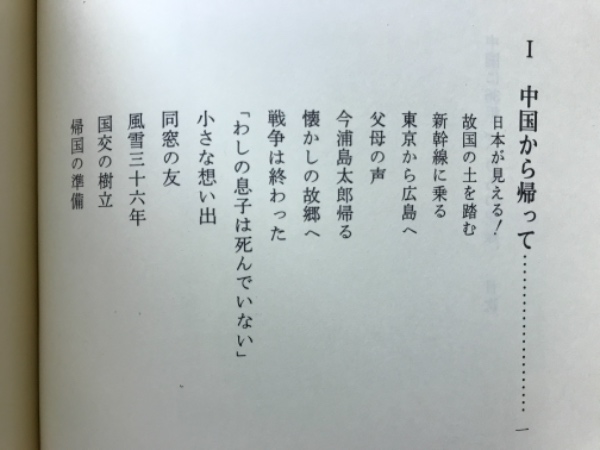 I 中国から帰って……………………一
日本が見える!
故国の土を踏む
新幹線に乗る
東京から広島へ
父母の声
今浦島太郎帰る
懐かしの故郷へ
戦争は終わった
「わしの息子は死んでいない」
小さな想い出
同窓の友
風雪三十六年
国交の樹立
帰国の準備